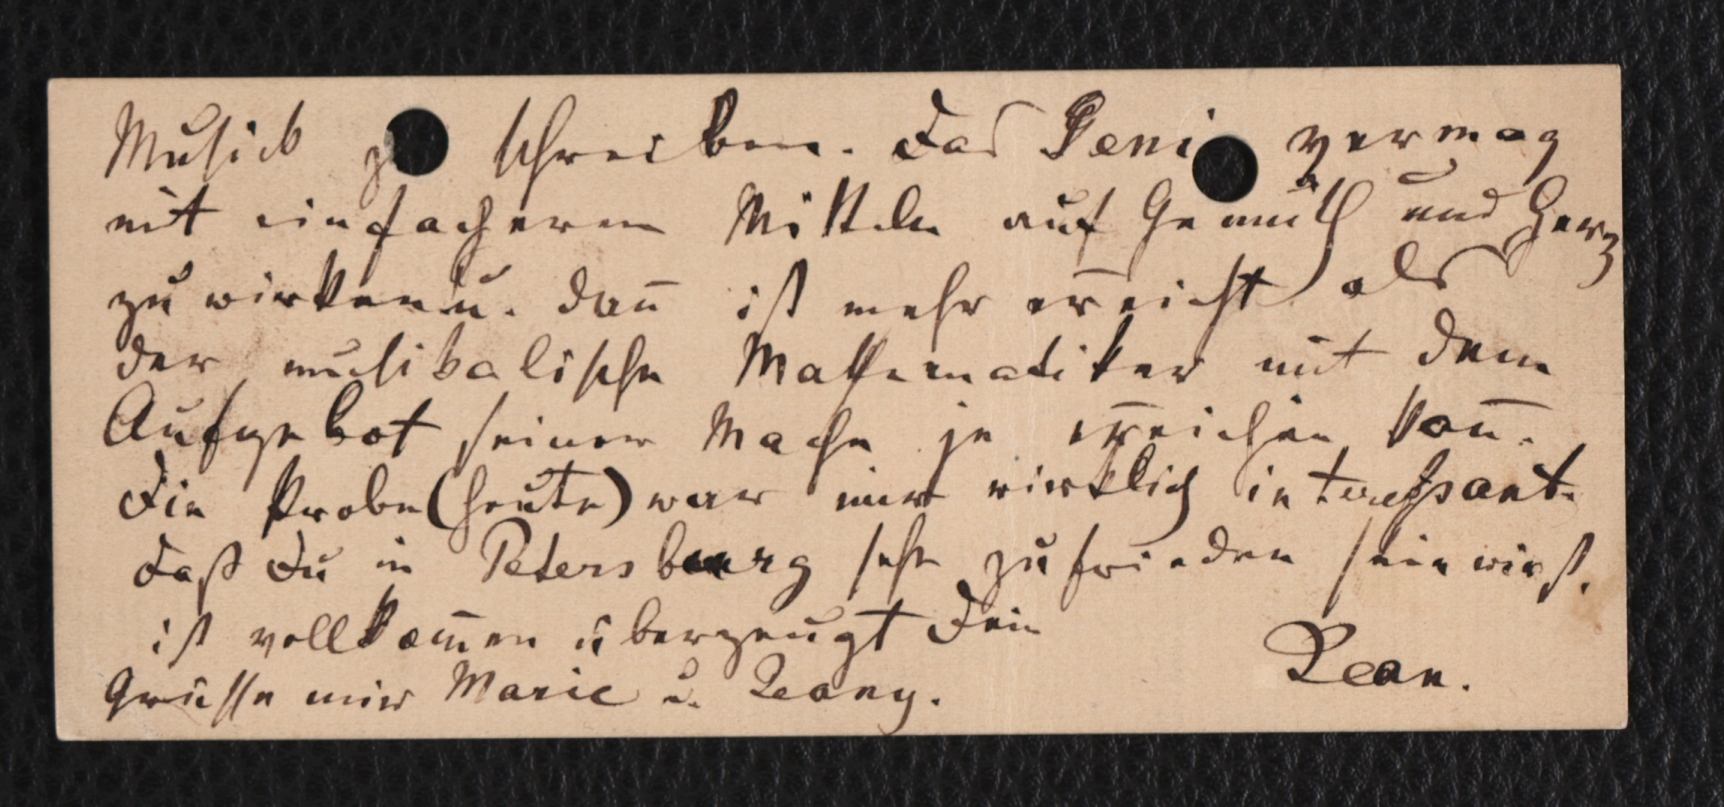 Musik z schreiben. Das Geni vermag
mit einfacheren Mitteln auf Gemüth und Herz
zu wirken u. dañ ist mehr er̄eicht als
der musikalische Mathematiker mit dem
Aufgebot seiner Mache je er̄eichen kan̄.
Die Probe (heute) war mir wirklich interessant.
Daß Du in Petersburg sehr zufrieden sein wirst,
ist vollkom̄en überzeugt Dein
Jean.
Grüsse mir Marie u. Jeany.